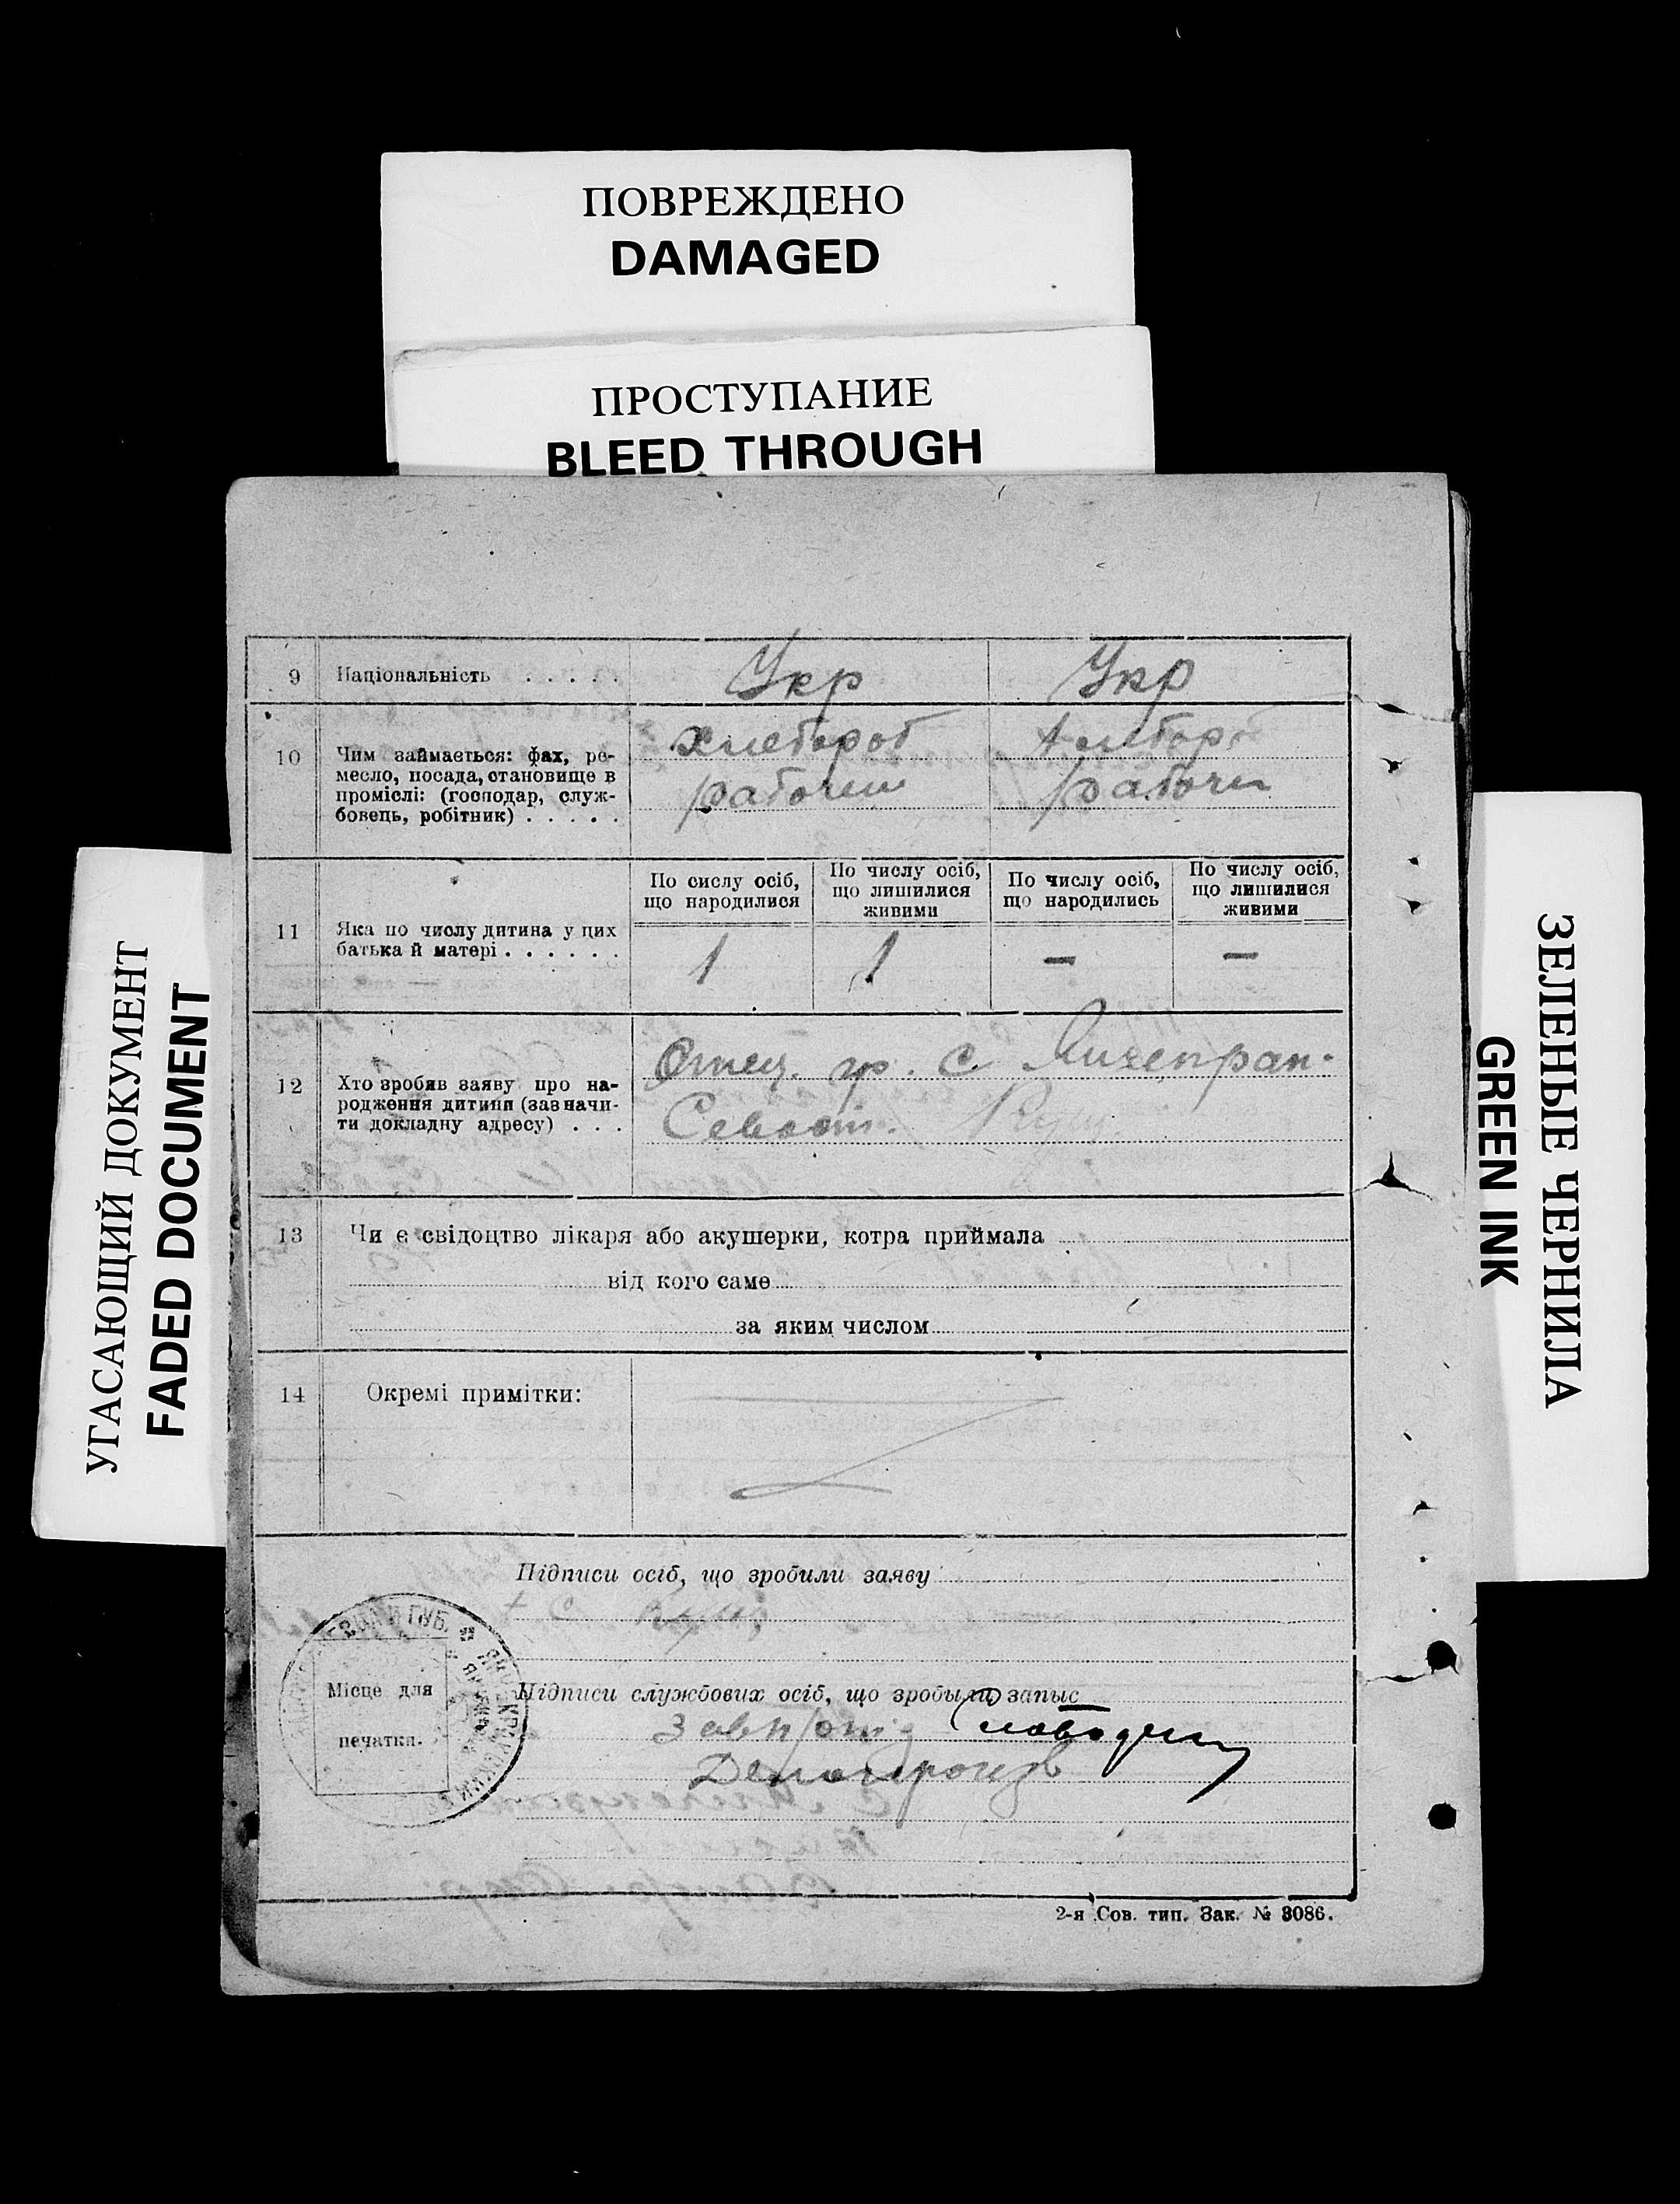 ПОВРЕЖДЕНО
DAMAGED
ПРОСТУПАНИЕ
BLEED THROUGH
УГАСАЮЩИЙ ДОКУМЕНТ
FADED DOCUMENT
ЗЕЛЕНЫЕ ЧЕРНИЛА
GREEN INK
9 Національність . . . . . Укр Укр
10 Чим займається: фах, ре-
месло, посада, становище в
проміслі: (господар, служ-
бовець, робітник) . . . . .
хлебороб
рабочий
рабочи
11 Яка по числу дитина у цих
батька й матері . . . . . .
По сислу осіб,
що народилися
По числу осіб,
що лишилися
живими
По числу осіб,
що народились
По числу осіб,
що лишилися
живими
1 1 — —
12 Хто зробив заяву про на-
родження дитини (зазначи-
ти докладну адресу) . . .
Отец. гр. с
Севаст.
13 Чи є свідоцтво лікаря або акушерки, котра приймала
від кого саме
за яким числом
14 Окремі примітки:
Підписи осіб, що зробили заяву
Місце для
печатки.
Підписи службових осіб, що зробыли запыс
2-я Сов. тип. Зак. № 3086.